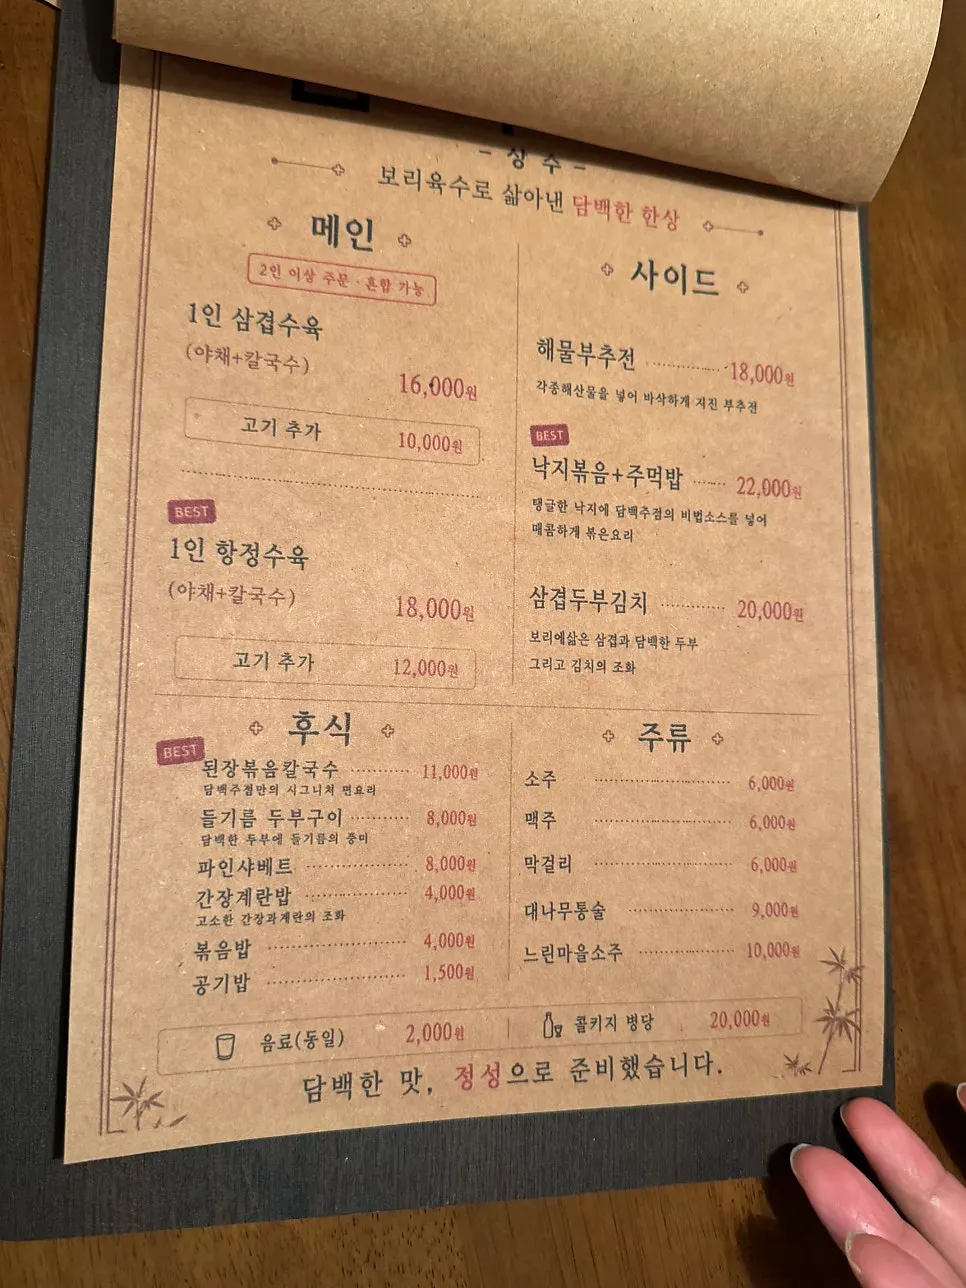 - 상수 -
보리육수로 삶아낸 담백한 한상
메인
2인 이상 주문 · 혼합 가능
1인 삼겹수육
(야채+칼국수)
16,000원
고기 추가 10,000원
BEST
1인 항정수육
(야채+칼국수)
18,000원
고기 추가 12,000원
사이드
해물부추전 18,000원
각종해산물을 넣어 바삭하게 지진 부추전
BEST
낙지볶음+주먹밥 22,000원
탱글한 낙지에 담백주점의 비법소스를 넣어
매콤하게 볶은요리
삼겹두부김치 20,000원
보리에삶은 삼겹과 담백한 두부
그리고 김치의 조화
후식
BEST
된장볶음칼국수 11,000원
담백주점만의 시그니처 면요리
들기름 두부구이 8,000원
담백한 두부에 들기름의 풍미
파인샤베트 8,000원
간장계란밥 4,000원
고소한 간장과계란의 조화
볶음밥 4,000원
공기밥 1,500원
주류
소주 6,000원
맥주 6,000원
막걸리 6,000원
대나무통술 9,000원
느린마을소주 10,000원
음료(동일) 2,000원 | 콜키지 병당 20,000원
담백한 맛, 정성으로 준비했습니다.